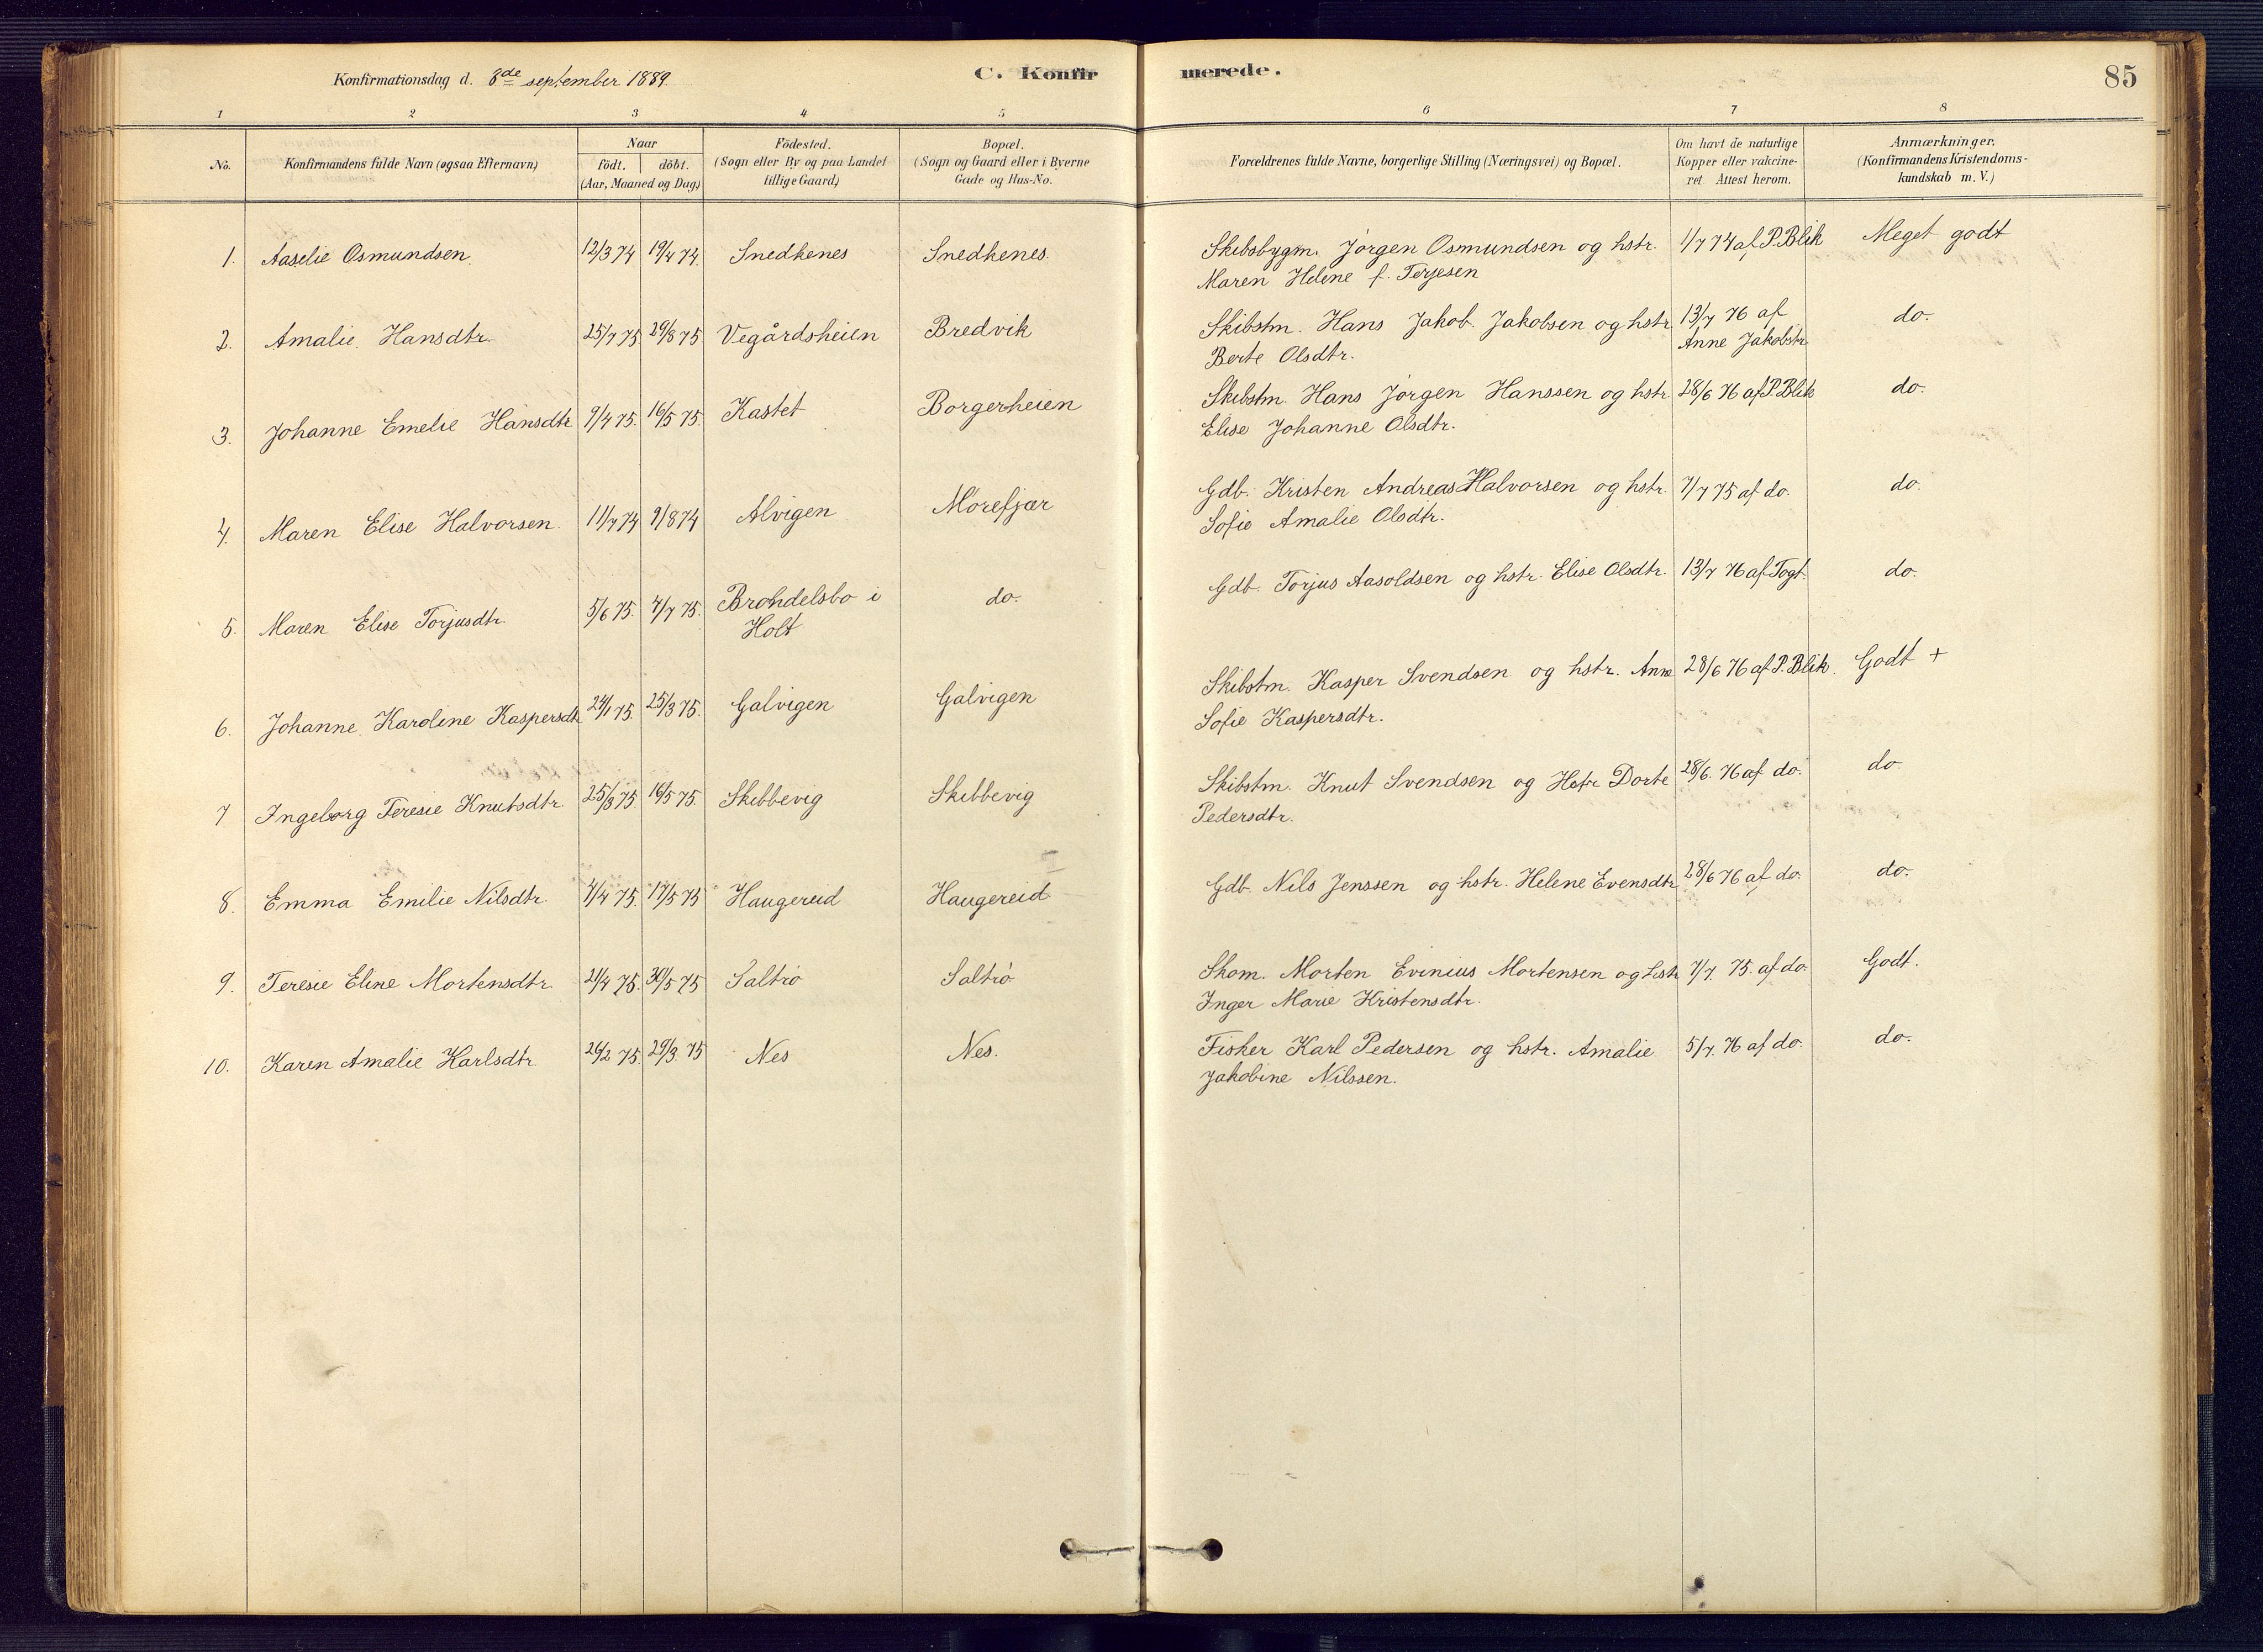 Konfirmationsdag d. 8de september 1889. C. Konfirmerede. 85
1 2 3 4 5 6 7 8
No. Konfirmandens fulde Navn (ogsaa Efternavn) Naar födt. döbt. (Aar, Maaned og Dag) Födested. (Sogn eller By og paa Landet tillige Gaard) Bopæl. (Sogn og Gaard eller i Byerne Gade og Hus-No. Forældrenes fulde Navne, borgerlige Stilling (Næringsvei) og Bopæl. Om havt de naturlige Kopper eller vakcineret Attest herom. Anmærkninger. (Konfirmandens Kristendomskundskab m. V.)
1. Aaselie Osmundsen. 12/3 74 19/4 74. Snedkenes Snedkenes. Skibsbygm. Jörgen Osmundsen og hstr. 1/7 74 af P. Blik Meget godt
Maren Helene f. Terjesen
2. Amalie Hansdtr. 25/7 75 29/8 75 Vegårdsheien Bredvik Skibstm. Hans Jakob Jakobsen og hstr 13/7 76 af do.
Berte Olsdtr. Anne Jakobstr
3. Johanne Emelie Hansdtr 9/4 75. 16/5 75. Kastet Borgerheien Skibstm. Hans Jörgen Hanssen og hstr. 28/6 76 af P. Blik do.
Elise Johanne Olsdtr.
4. Maren Elise Halvorsen. 11/7 74 9/8 74 Alvigen Mörefjær Gdb. Kristen Andreas Halvorsen og hstr. 7/7 75 af do. do.
Sofie Amalie Olsdtr.
5. Maren Elise Torjusdtr. 5/6 75. 4/7 75. Bröndelsbo i do. Gdb. Torjus Aasoldsen og hstr. Elise Olsdtr. 13/7 76 af Togt. do.
Holt
6. Johanne Karoline Kaspersdtr 24/1 75. 25/3 75. Galvigen Galvigen Skibstm. Kasper Svendsen og hstr. Anne 28/6 76 af P. Blik. Godt +
Sofie Kaspersdtr.
7 Ingeborg Teresie Knutsdtr. 25/3 75. 16/5 75. Skibbevig Skibbevig Skibstm. Knut Svendsen og Hstr Dorte 28/6. 76 af do. do.
Pedersdtr.
8. Emma Emilie Nilsdtr. 4/4 75. 17/5 75 Haugereid Haugereid Gdb. Nils Jenssen og hstr. Helene Evensdtr 28/6 76 af do. do.
9. Teresie Eline Mortensdtr. 21/4 75. 30/5 75 Saltrö Saltrö Skom. Morten Evinius Mortensen og hstr 7/7. 75. af do. Godt.
Inger Marie Kristensdtr.
10. Karen Amalie Karlsdtr. 26/2 75. 29/3. 75 Nes Nes. Fisker Karl Pedersen og hstr. Amalie 5/7. 76 af do. do.
Jakobine Nilssen.